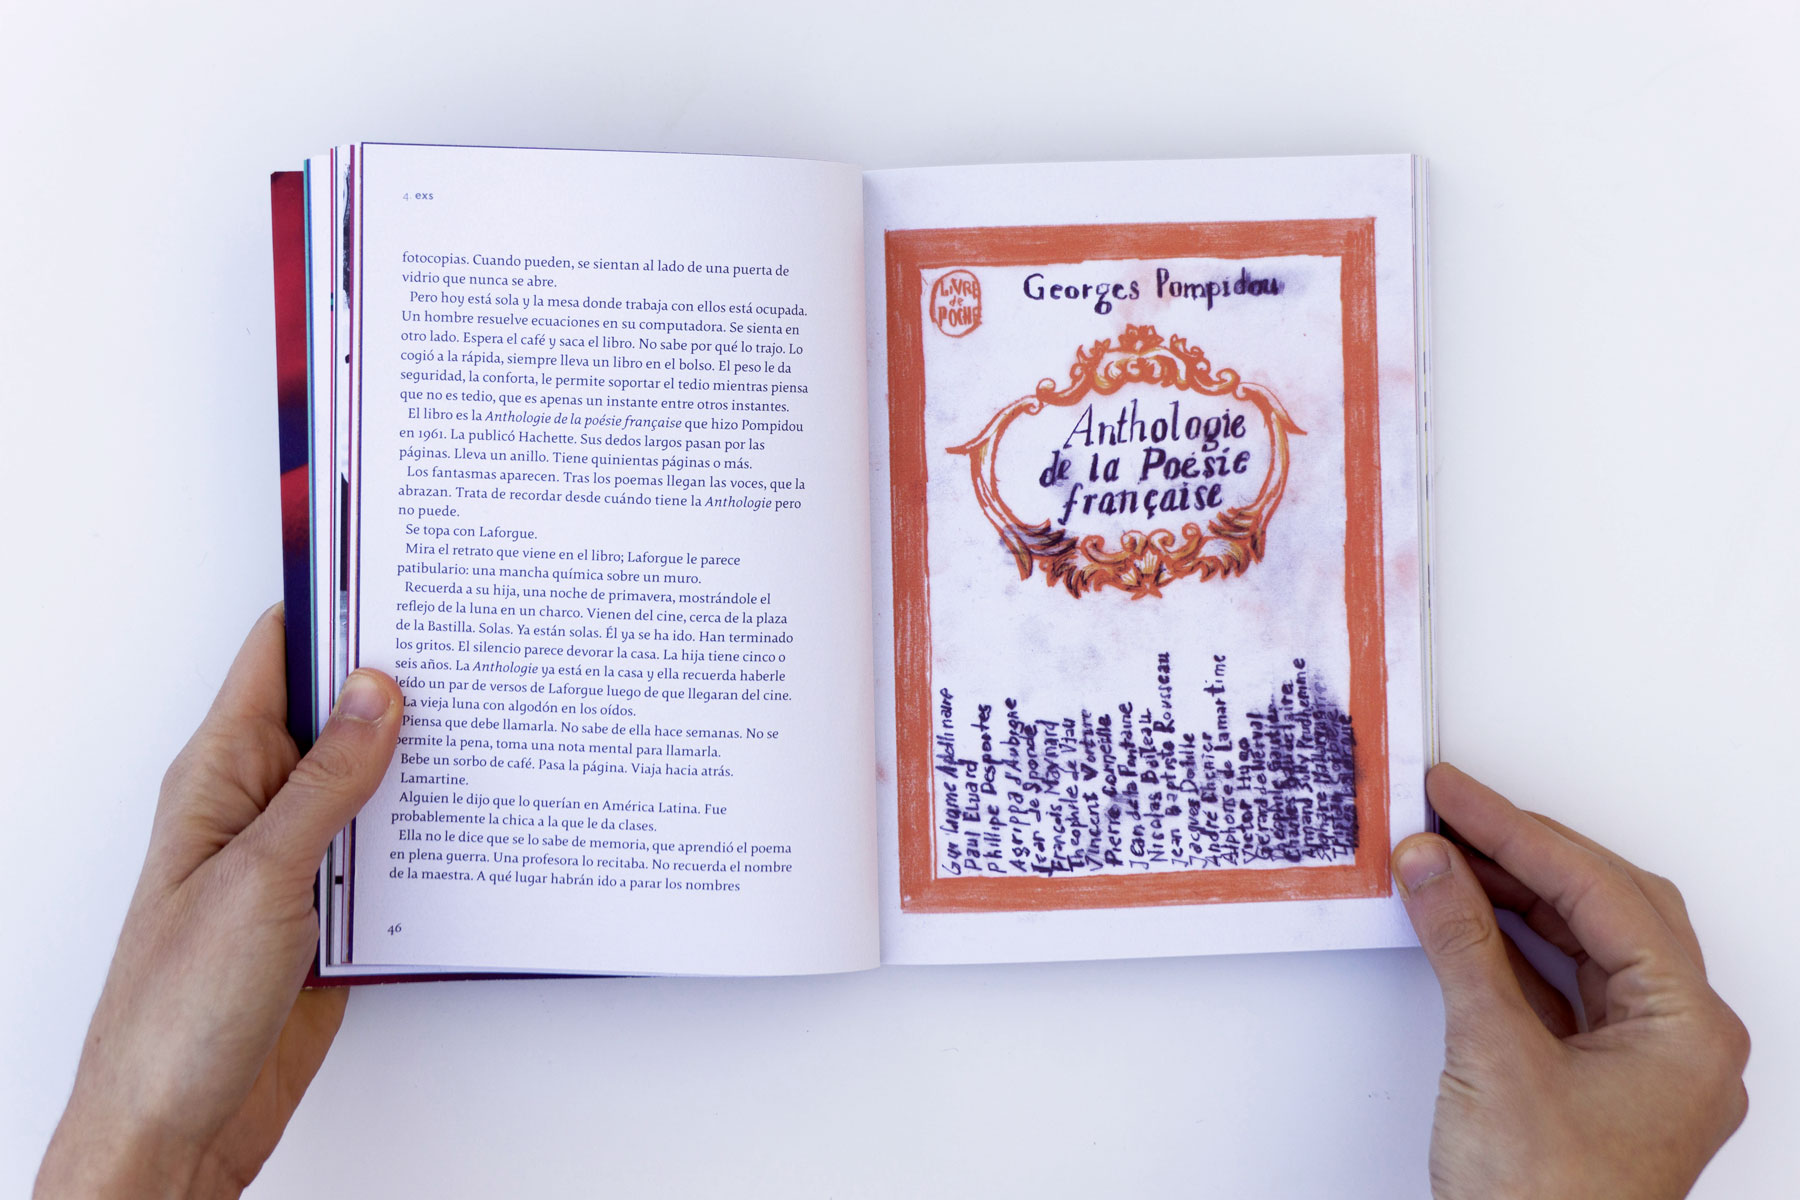 4. exs
fotocopias. Cuando pueden, se sientan al lado de una puerta de
vidrio que nunca se abre.
Pero hoy está sola y la mesa donde trabaja con ellos está ocupada.
Un hombre resuelve ecuaciones en su computadora. Se sienta en
otro lado. Espera el café y saca el libro. No sabe por qué lo trajo. Lo
cogió a la rápida, siempre lleva un libro en el bolso. El peso le da
seguridad, la conforta, le permite soportar el tedio mientras piensa
que no es tedio, que es apenas un instante entre otros instantes.
El libro es la Anthologie de la poésie française que hizo Pompidou
en 1961. La publicó Hachette. Sus dedos largos pasan por las
páginas. Lleva un anillo. Tiene quinientas páginas o más.
Los fantasmas aparecen. Tras los poemas llegan las voces, que la
abrazan. Trata de recordar desde cuándo tiene la Anthologie pero
no puede.
Se topa con Laforgue.
Mira el retrato que viene en el libro; Laforgue le parece
patibulario: una mancha química sobre un muro.
Recuerda a su hija, una noche de primavera, mostrándole el
reflejo de la luna en un charco. Vienen del cine, cerca de la plaza
de la Bastilla. Solas. Ya están solas. Él ya se ha ido. Han terminado
los gritos. El silencio parece devorar la casa. La hija tiene cinco o
seis años. La Anthologie ya está en la casa y ella recuerda haberle
leído un par de versos de Laforgue luego de que llegaran del cine.
La vieja luna con algodón en los oídos.
Piensa que debe llamarla. No sabe de ella hace semanas. No se
permite la pena, toma una nota mental para llamarla.
Bebe un sorbo de café. Pasa la página. Viaja hacia atrás.
Lamartine.
Alguien le dijo que lo querían en América Latina. Fue
probablemente la chica a la que le da clases.
Ella no le dice que se lo sabe de memoria, que aprendió el poema
en plena guerra. Una profesora lo recitaba. No recuerda el nombre
de la maestra. A qué lugar habrán ido a parar los nombres
46
LIVRE
de
POCHE
Georges Pompidou
Anthologie
de la Poésie
française
Guillaume Apollinaire
Paul Eluard
Phillipe Desportes
Agrippa d'Aubigne
Jean de Sponde
François Maynard
Theophile de Viau
Vincent Voiture
Pierre Corneille
Jean de la Fontaine
Nicolas Boileau
Jean Baptiste Rousseau
Jacques Delille
André Chenier
Alphonse de Lamartine
Victor Hugo
Gerard de Nerval
Theophile Gautier
Charles Baudelaire
Armand Sully Prudhomme